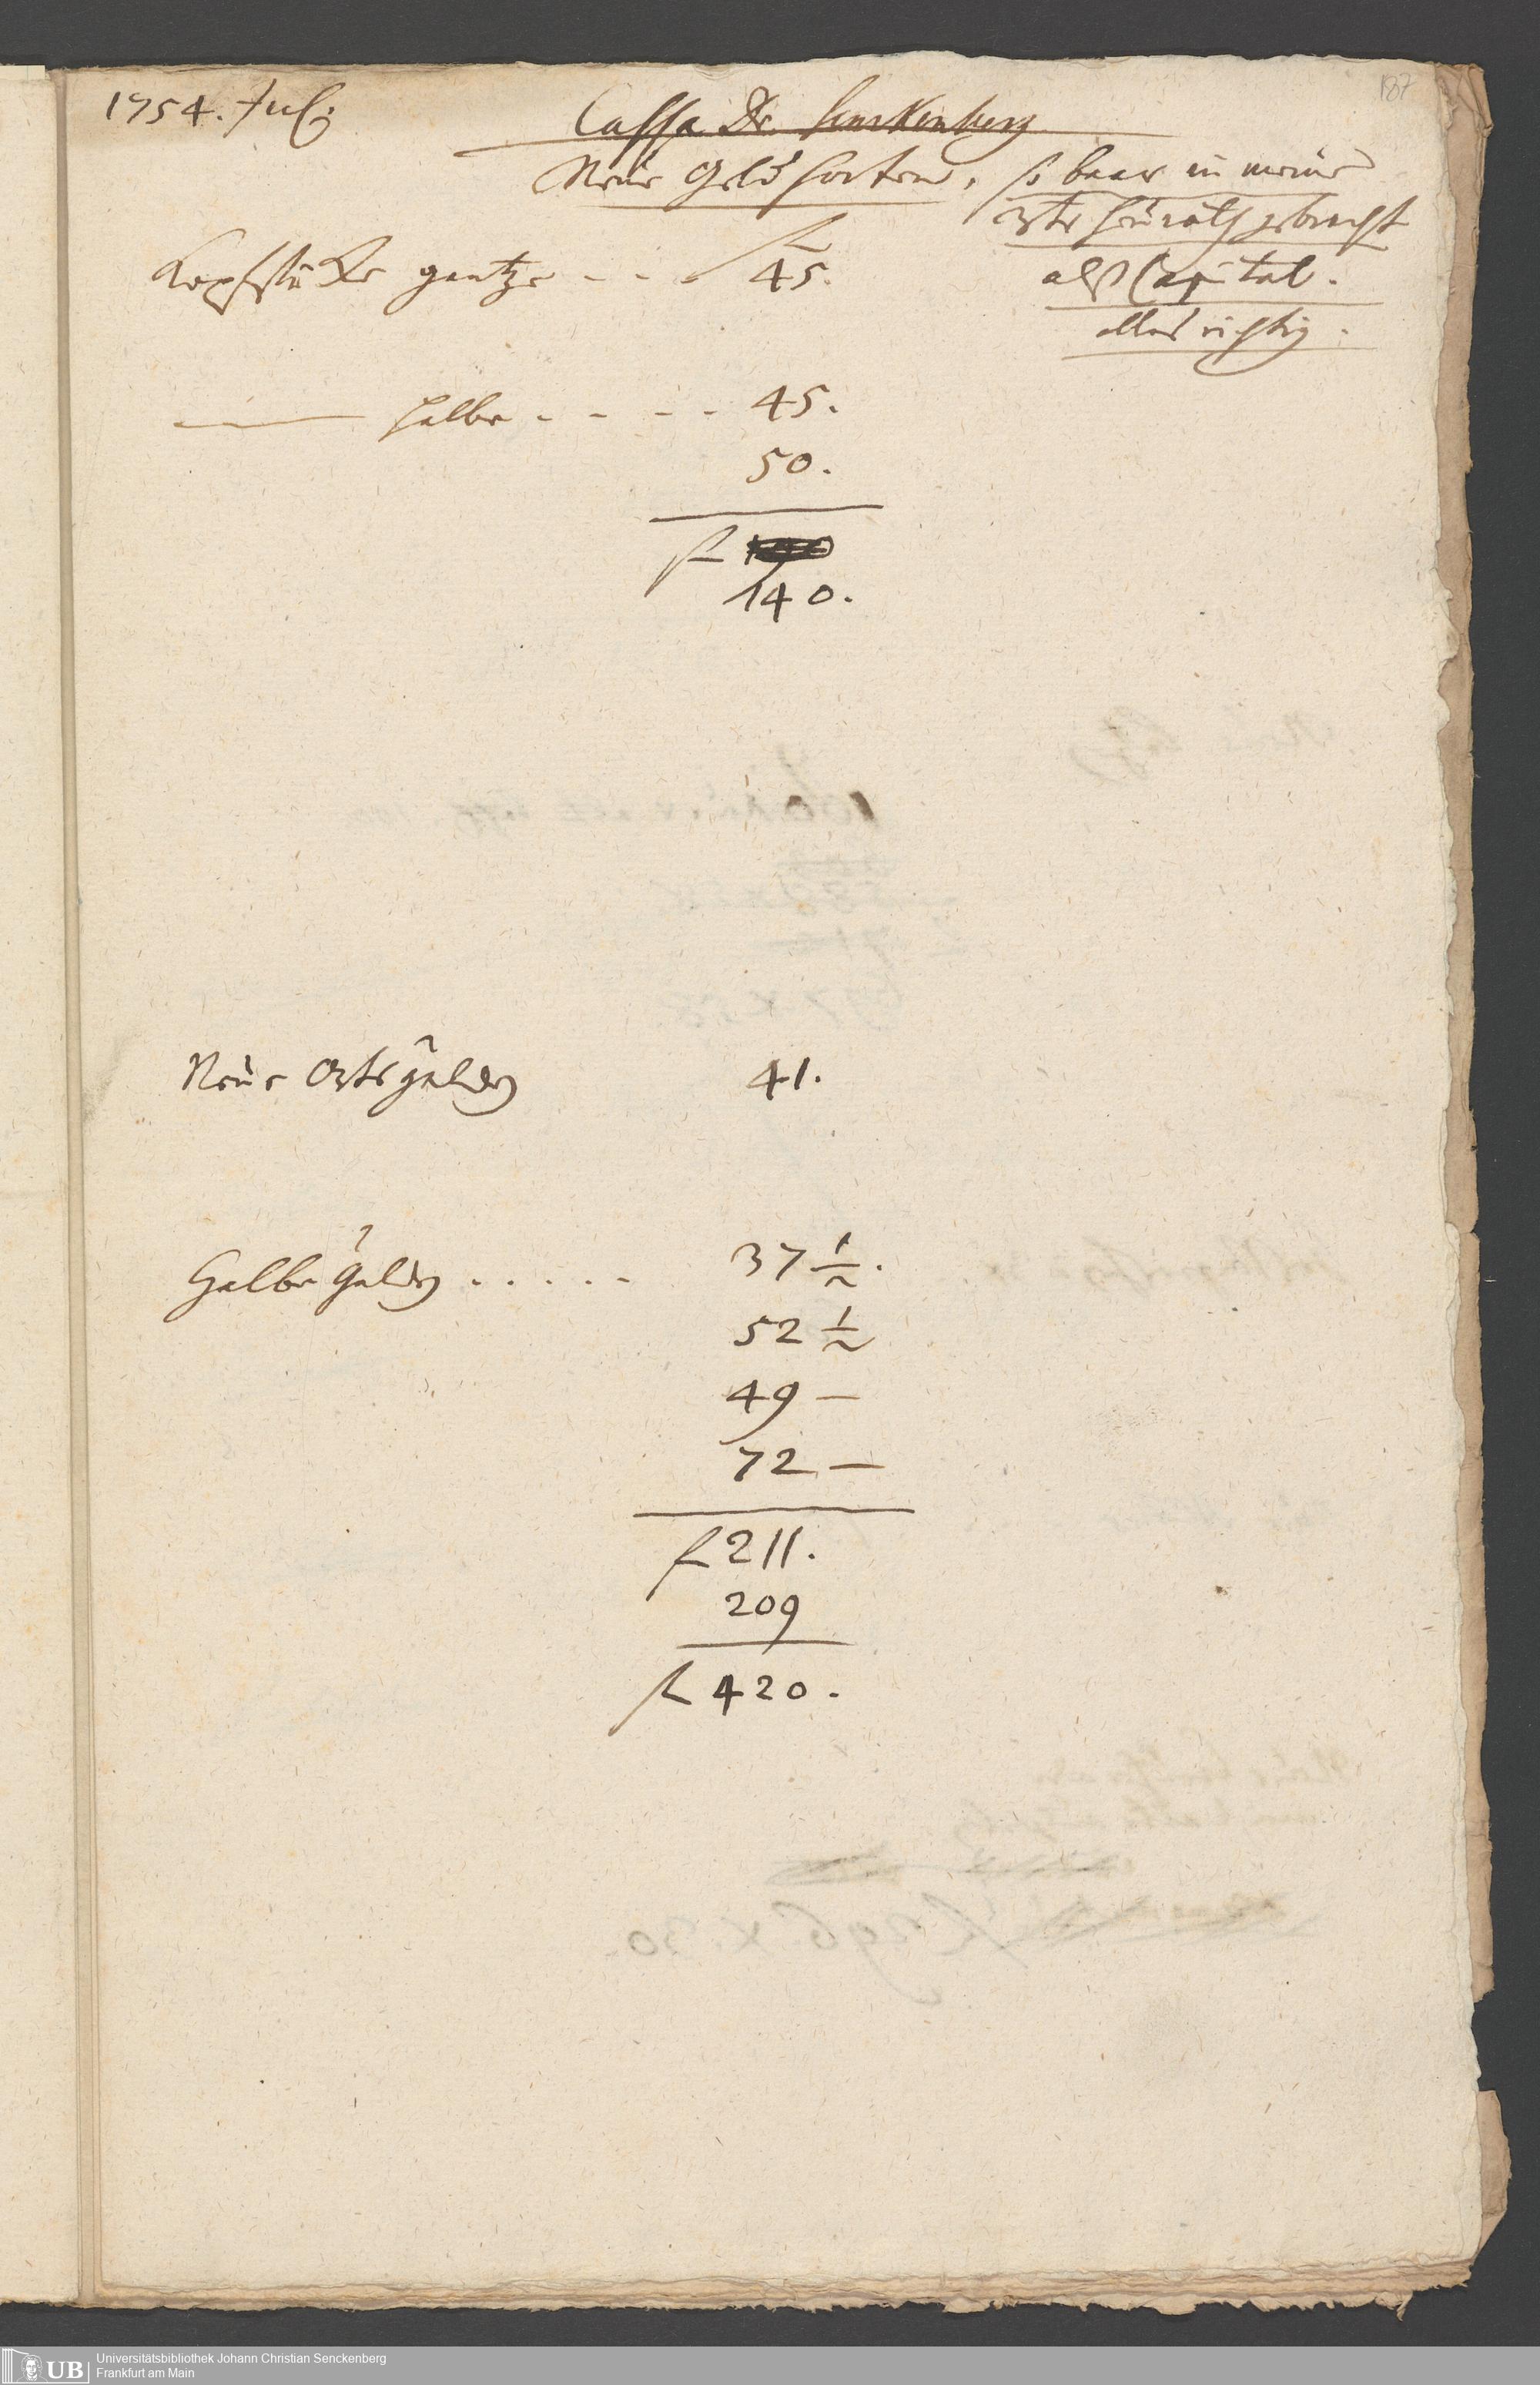 187
1754. Jul:
Cassa Dr. Senckenberg
Neüe Geld sorten, so baar in meine
3te heürath gebracht
als Capital.
alles richtig.
fl
Kopfstücke gantze - - - 45.
halbe - - - - 45.
50.
fl
140.
Neüe Ortsgulden 41.
Halbe Gulden . . . . . 37 1/2.
52 1/2
49 —
72 —
fl 211.
209
fl 420.
UB
Universitätsbibliothek Johann Christian Senckenberg
Frankfurt am Main